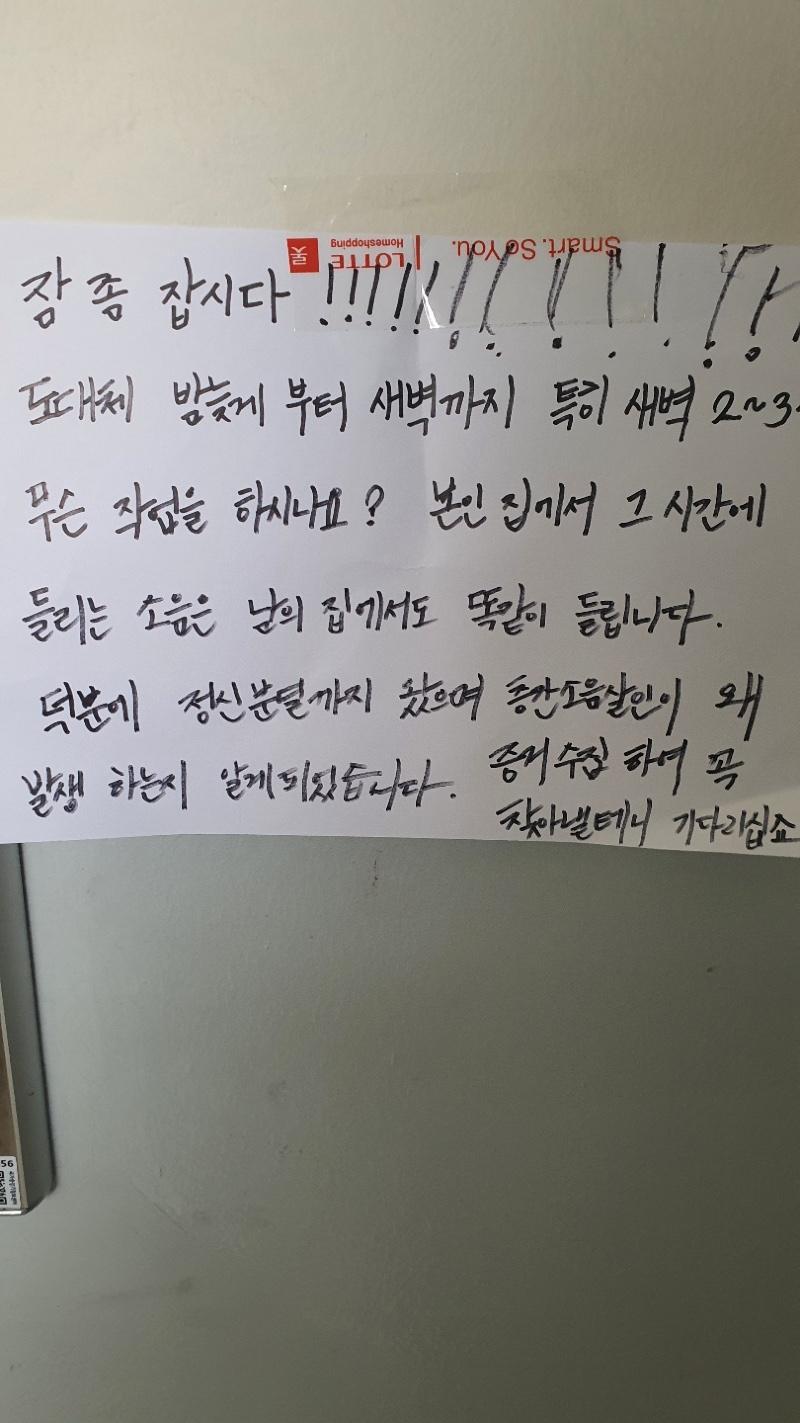 Smart. So You.
LOTTE
Homeshopping
롯
잠 좀 잡시다 !!!!!!!!!!!!!!
도대체 밤늦게 부터 새벽까지 특히 새벽 2~3
무슨 작업을 하시나요? 본인 집에서 그 시간에
들리는 소음은 남의 집에서도 똑같이 들립니다.
덕분에 정신분열까지 왔으며 층간소음살인이 왜
발생 하는지 알게되었습니다.
증거수집 하여 꼭
찾아낼테니 기다리십쇼
56